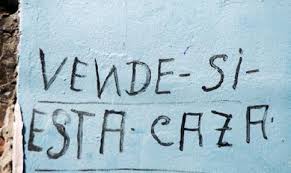 VENDE-SI-
ESTA CAZA.